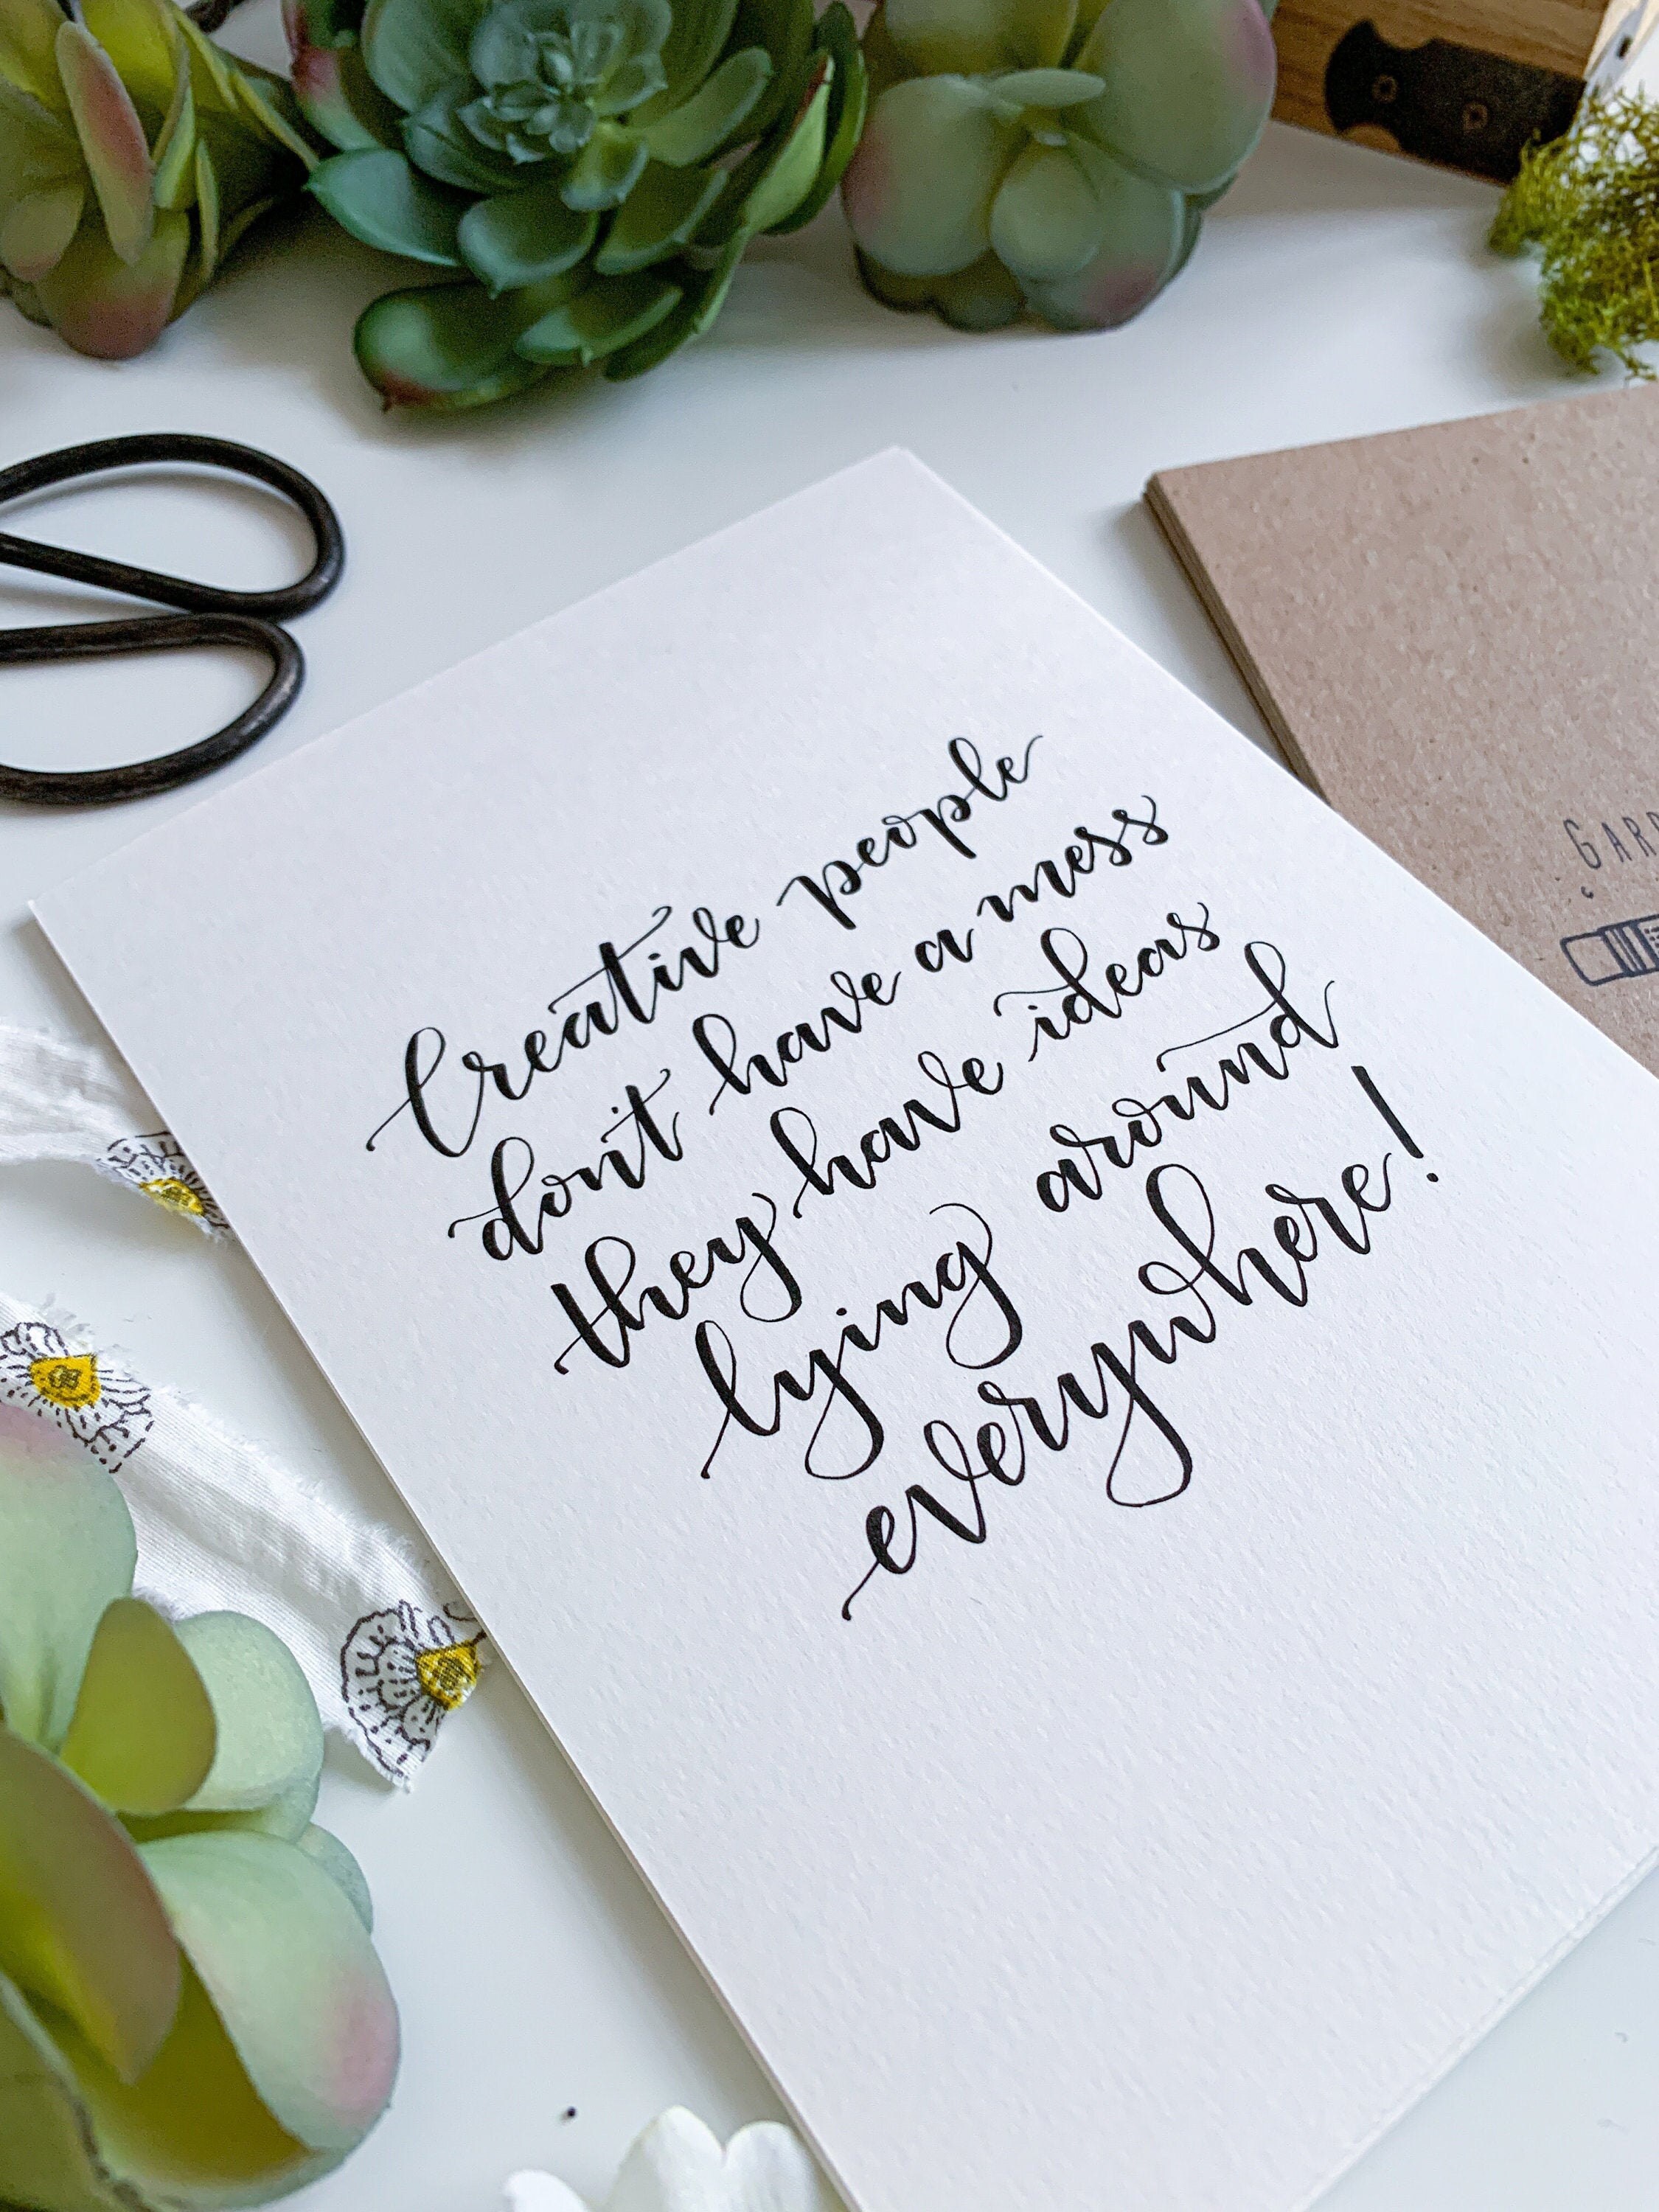 Creative people
don't have a mess
they have ideas
lying around
everywhere!